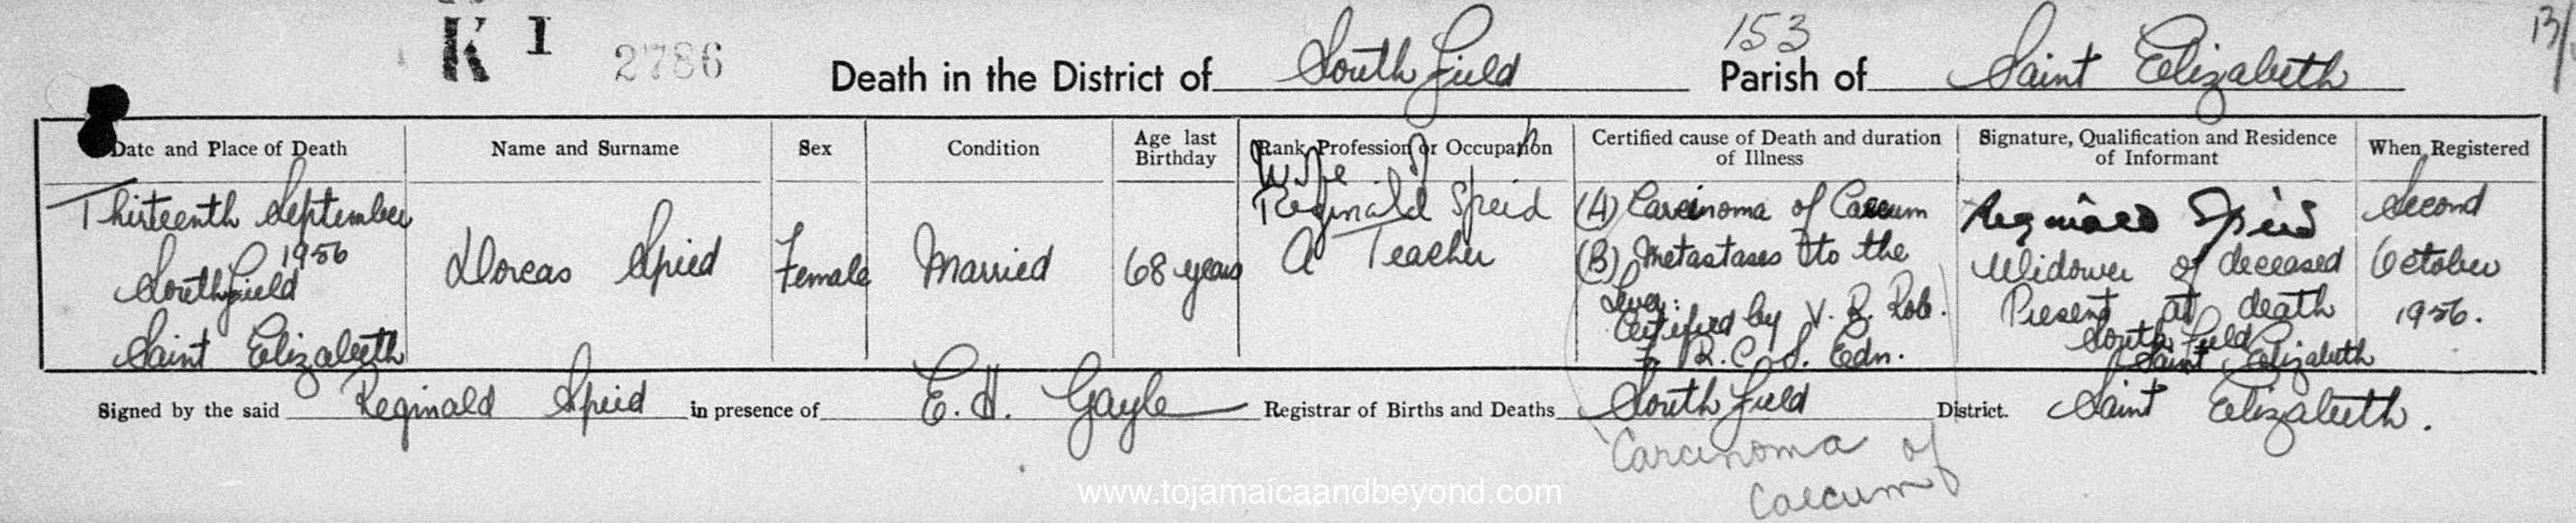 K 1 2786
153
13/
Death in the District of South Field Parish of Saint Elizabeth
Date and Place of Death
Name and Surname
Sex
Condition
Age last
Birthday
Rank, Profession or Occupation
Certified cause of Death and duration
of Illness
Signature, Qualification and Residence
of Informant
When Registered
Thirteenth September
1956
Southfield
Saint Elizabeth
Dorcas Spied
Female
Married
68 years
Wife of
Reginald Speid
A Teacher
(A) Carcinoma of Caecum
(B) Metastases to the
Liver:
Certified by V. R. Rob.
F. R. C. S. Edn.
Reginald Speid
Widower of deceased
Present at death
South Field
Saint Elizabeth
Second
October
1956.
Signed by the said Reginald Speid in presence of E. H. Gayle Registrar of Births and Deaths South Field District. Saint Elizabeth.
Carcinoma of
Caecum
www.tojamaicaandbeyond.com